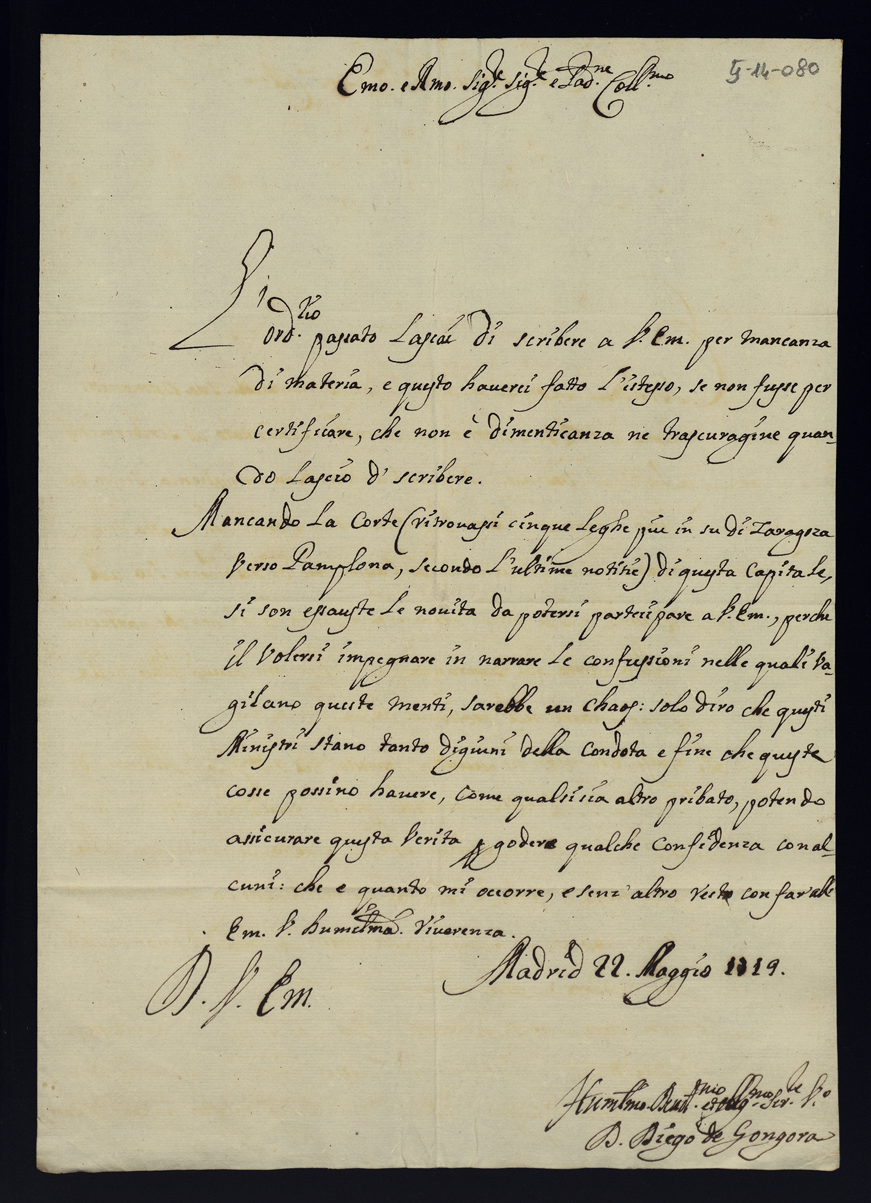 Emo. e Rmo. Sigr. Sigr. e Padne. Collmo
IJ-14-080
L'ordrio passato lasciai di scribere a V. Em. per mancanza
di materia, e questo haverei fatto l'istesso, se non fusse per
certificare, che non è dimenticanza ne trascuragine quan-
do lascio d' scribere.
Mancando la Corte (ritrovassi cinque leghe piu in su di Zaragoza
verso Pamplona, secondo l'ultime notitie) di questa Capitale,
si son essauste le novita da potersi participare a V. Em., perche
il volersi impegnare in narrare le confussioni nelle quali va-
gilano queste menti, sarebbe un chaos: solo diro che questi
Ministri stano tanto digiuni della condota e fine che queste
cosse possino havere, come qualsisia altro pribato, potendo
assicurare questa verita p godere qualche confidenza con al-
cuni: che e quanto mi occorre, e senz' altro resto con far alle
Em. V. humilma. riverenza.
Madrid 22. Maggio 1719.
D. V. Em.
Humlmo. Devmo. et obligmo. Serre. Vo
D. Diego de Gongora